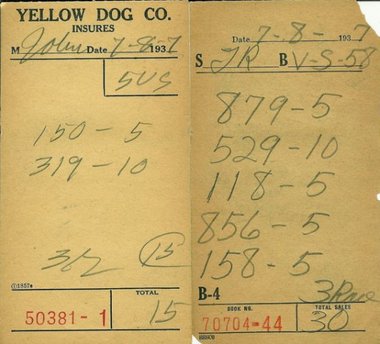 YELLOW DOG CO.
INSURES
M John Date 7-8-1937
5US
150-5
319-10
15
TOTAL
15
50381-1
Date 7-8-1937
S JR B V-S-58
879-5
529-10
118-5
856-5
158-5
B-4
BOOK NO.
TOTAL SALES
70704-44
30